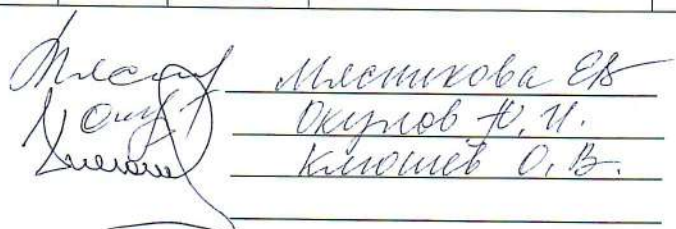 Мясникова ЕВ
Окулов Ю. И.
Клюшев О. В.